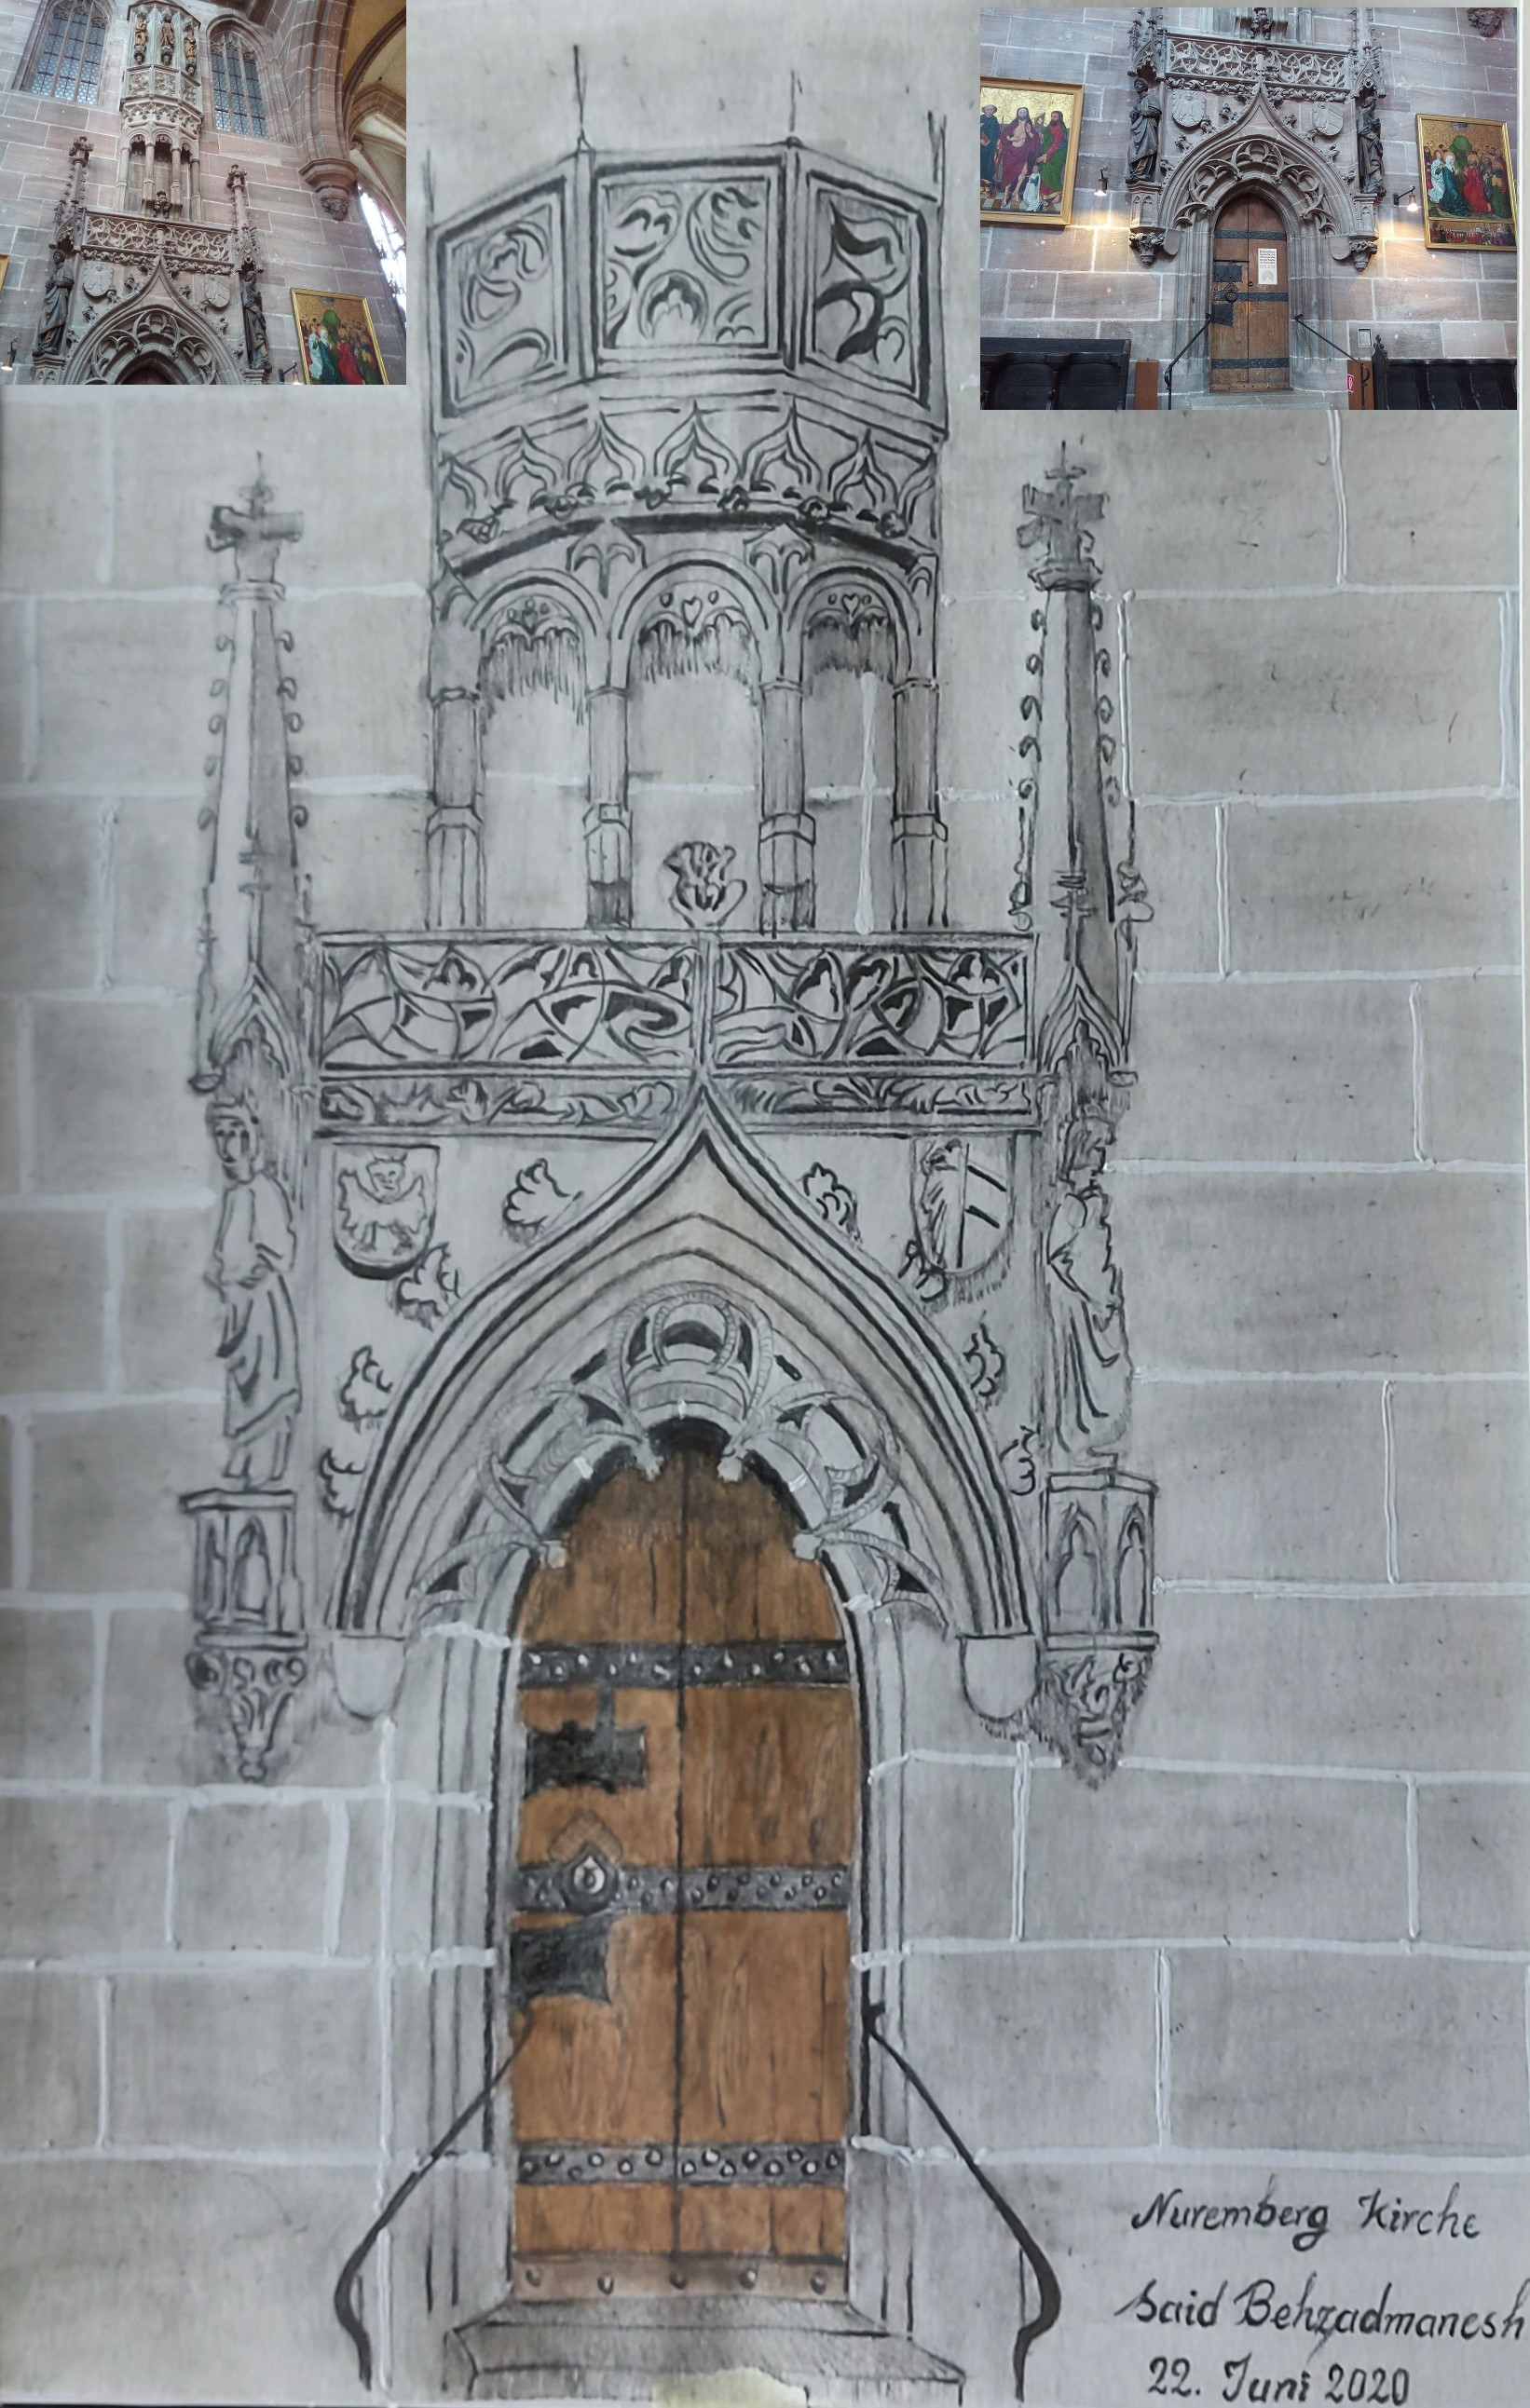 Nuremberg Kirche
Said Behzadmanesh
22. Juni 2020